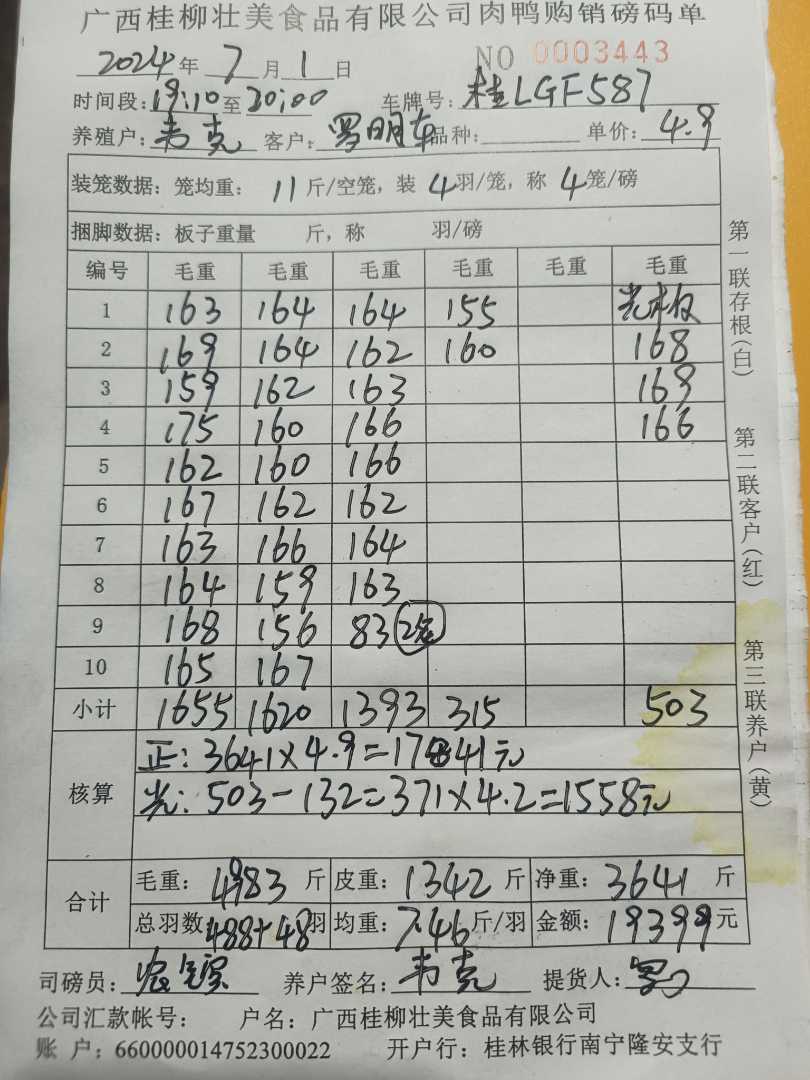 广西桂柳壮美食品有限公司肉鸭购销磅码单
2024年7月1日 NO 0003443
时间段:19:10至20:00 车牌号:桂LGF587
养殖户:韦克 客户:罗明车 品种: 单价:4.9
装笼数据:笼均重: 11斤/空笼,装4羽/笼,称4笼/磅
捆脚数据:板子重量 斤,称 羽/磅
编号 毛重 毛重 毛重 毛重 毛重 毛重
1 163 164 164 155 光木板
2 169 164 162 160 168
3 159 162 163 169
4 175 160 166 166
5 162 160 166
6 167 162 162
7 163 166 164
8 164 159 163
9 168 156 83 2笼
10 165 167
小计 1655 1620 1393 315 503
核算
正:3641×4.9=17841元
光:503-132=371×4.2=1558元
合计
毛重:4983斤 皮重:1342斤 净重:3641斤
总羽数488+48羽 均重:7.46斤/羽 金额:19399元
司磅员: 养户签名:韦克 提货人:罗
公司汇款帐号: 户名:广西桂柳壮美食品有限公司
账 户:660000014752300022 开户行:桂林银行南宁隆安支行
第一联存根(白)
第二联客户(红)
第三联养户(黄)